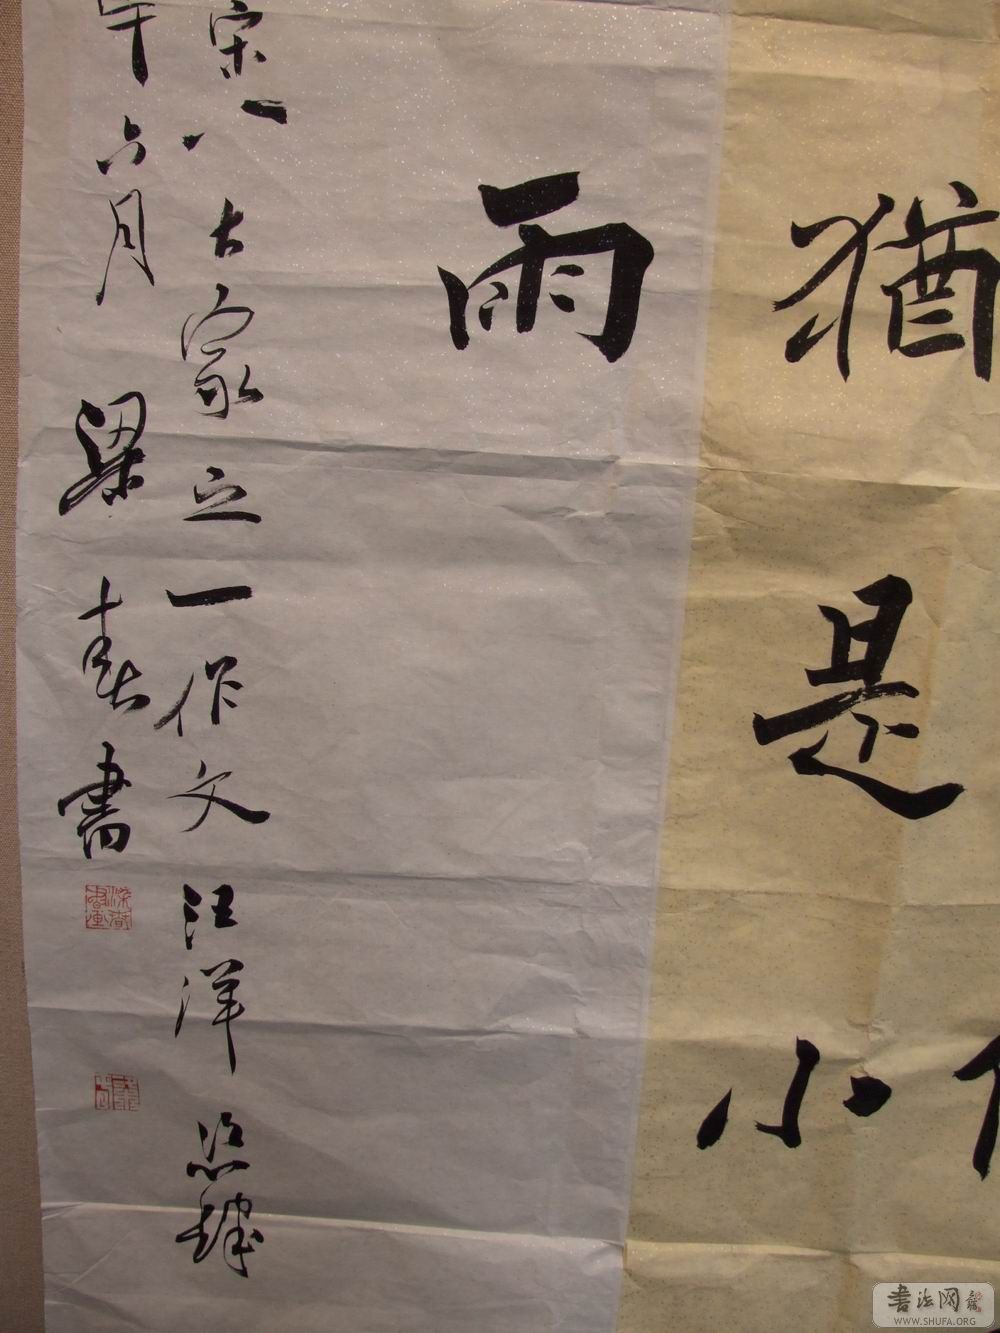 猶是小
雨
宋八大家之一作文汪洋恣肆
午六月梁春書
書法网
WWW.SHUFA.ORG